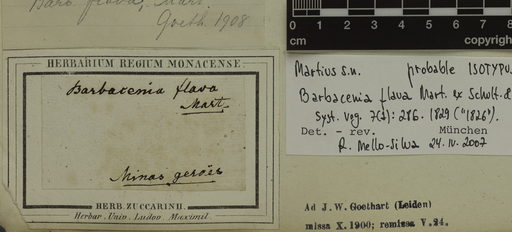 Barb. flava, Mart.
Goeth. 1908
HERBARIUM REGIUM MONACENSE.
Barbacenia flava
Mart.
Minas geroës
HERB. ZUCCARINII.
Herbar. Univ. Ludov. Maximil.
0 1 2 3 4 5 6 7 8 9 10
cm
copyrigh
Martius s.n. probable ISOTYPU
Barbacenia flava Mart. ex Schult. &
Syst. Veg. 7(2): 286. 1829 ("1826").
Det. - rev. München
R. Mello-Silva 24.IV.2007
Ad J. W. Goethart (Leiden)
missa X. 1900; remissa V. 24.